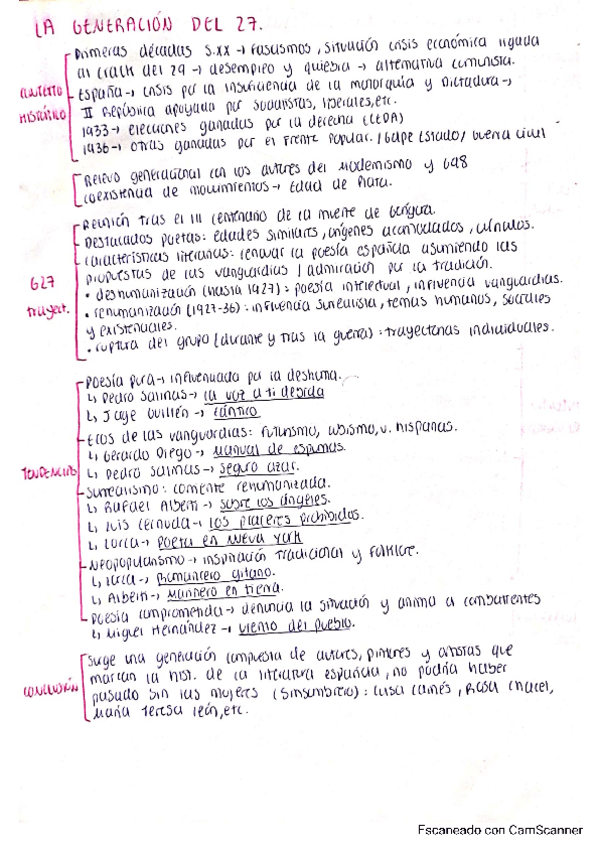 LA GENERACIÓN DEL 27.
Primeras décadas S.XX → Fascismos, situación crisis económica ligada
al crack del 29 → desempleo y quiebra → alternativa comunista.
CONTEXTO HISTÓRICO
España → crisis por la insuficiencia de la monarquía y Dictadura →
II República apoyada por socialistas, liberales, etc.
1933 → elecciones ganadas por la derecha (CEDA)
1936 → otras ganadas por el Frente Popular. / Golpe Estado / Guerra Civil
Relevo generacional con los autores del Modernismo y G98
coexistencia de movimientos → Edad de Plata.
Reunión tras el III centenario de la muerte de Góngora.
Destacados poetas: edades similares, orígenes acomodados, vínculos.
características literarias: renovar la poesía española asumiendo las
propuestas de las vanguardias / admiración por la tradición.
G27 trayect.
• deshumanización (hasta 1927): poesía intelectual, influencia vanguardias.
• rehumanización (1927-36): influencia surrealista, temas humanos, sociales
y existenciales.
• ruptura del grupo (durante y tras la guerra): trayectorias individuales.
Poesía pura → influenciada por la deshuma.
↳ Pedro Salinas → La voz a ti debida
↳ Jorge Guillén → Cántico
Ecos de las vanguardias: futurismo, cubismo, v. hispanas.
↳ Gerardo Diego → Manual de espumas.
TENDENCIAS
↳ Pedro Salinas → Seguro azar.
Surrealismo: corriente rehumanizada.
↳ Rafael Alberti → Sobre los ángeles.
↳ Luis Cernuda → Los placeres prohibidos.
↳ Lorca → Poeta en Nueva York
Neopopularismo → inspiración tradicional y folklore.
↳ Lorca → Romancero gitano.
↳ Alberti → Marinero en tierra.
Poesía comprometida → denuncia la situación y anima a combatientes
↳ Miguel Hernández → Viento del pueblo.
Surge una generación compuesta de autores, pintores y artistas que
marcan la hist. de la literatura española, no podría haber
CONCLUSIÓN
pasado sin las mujeres (Sinsombrero): Luisa Carnés, Rosa Chacel,
María Teresa León, etc.
Escaneado con CamScanner